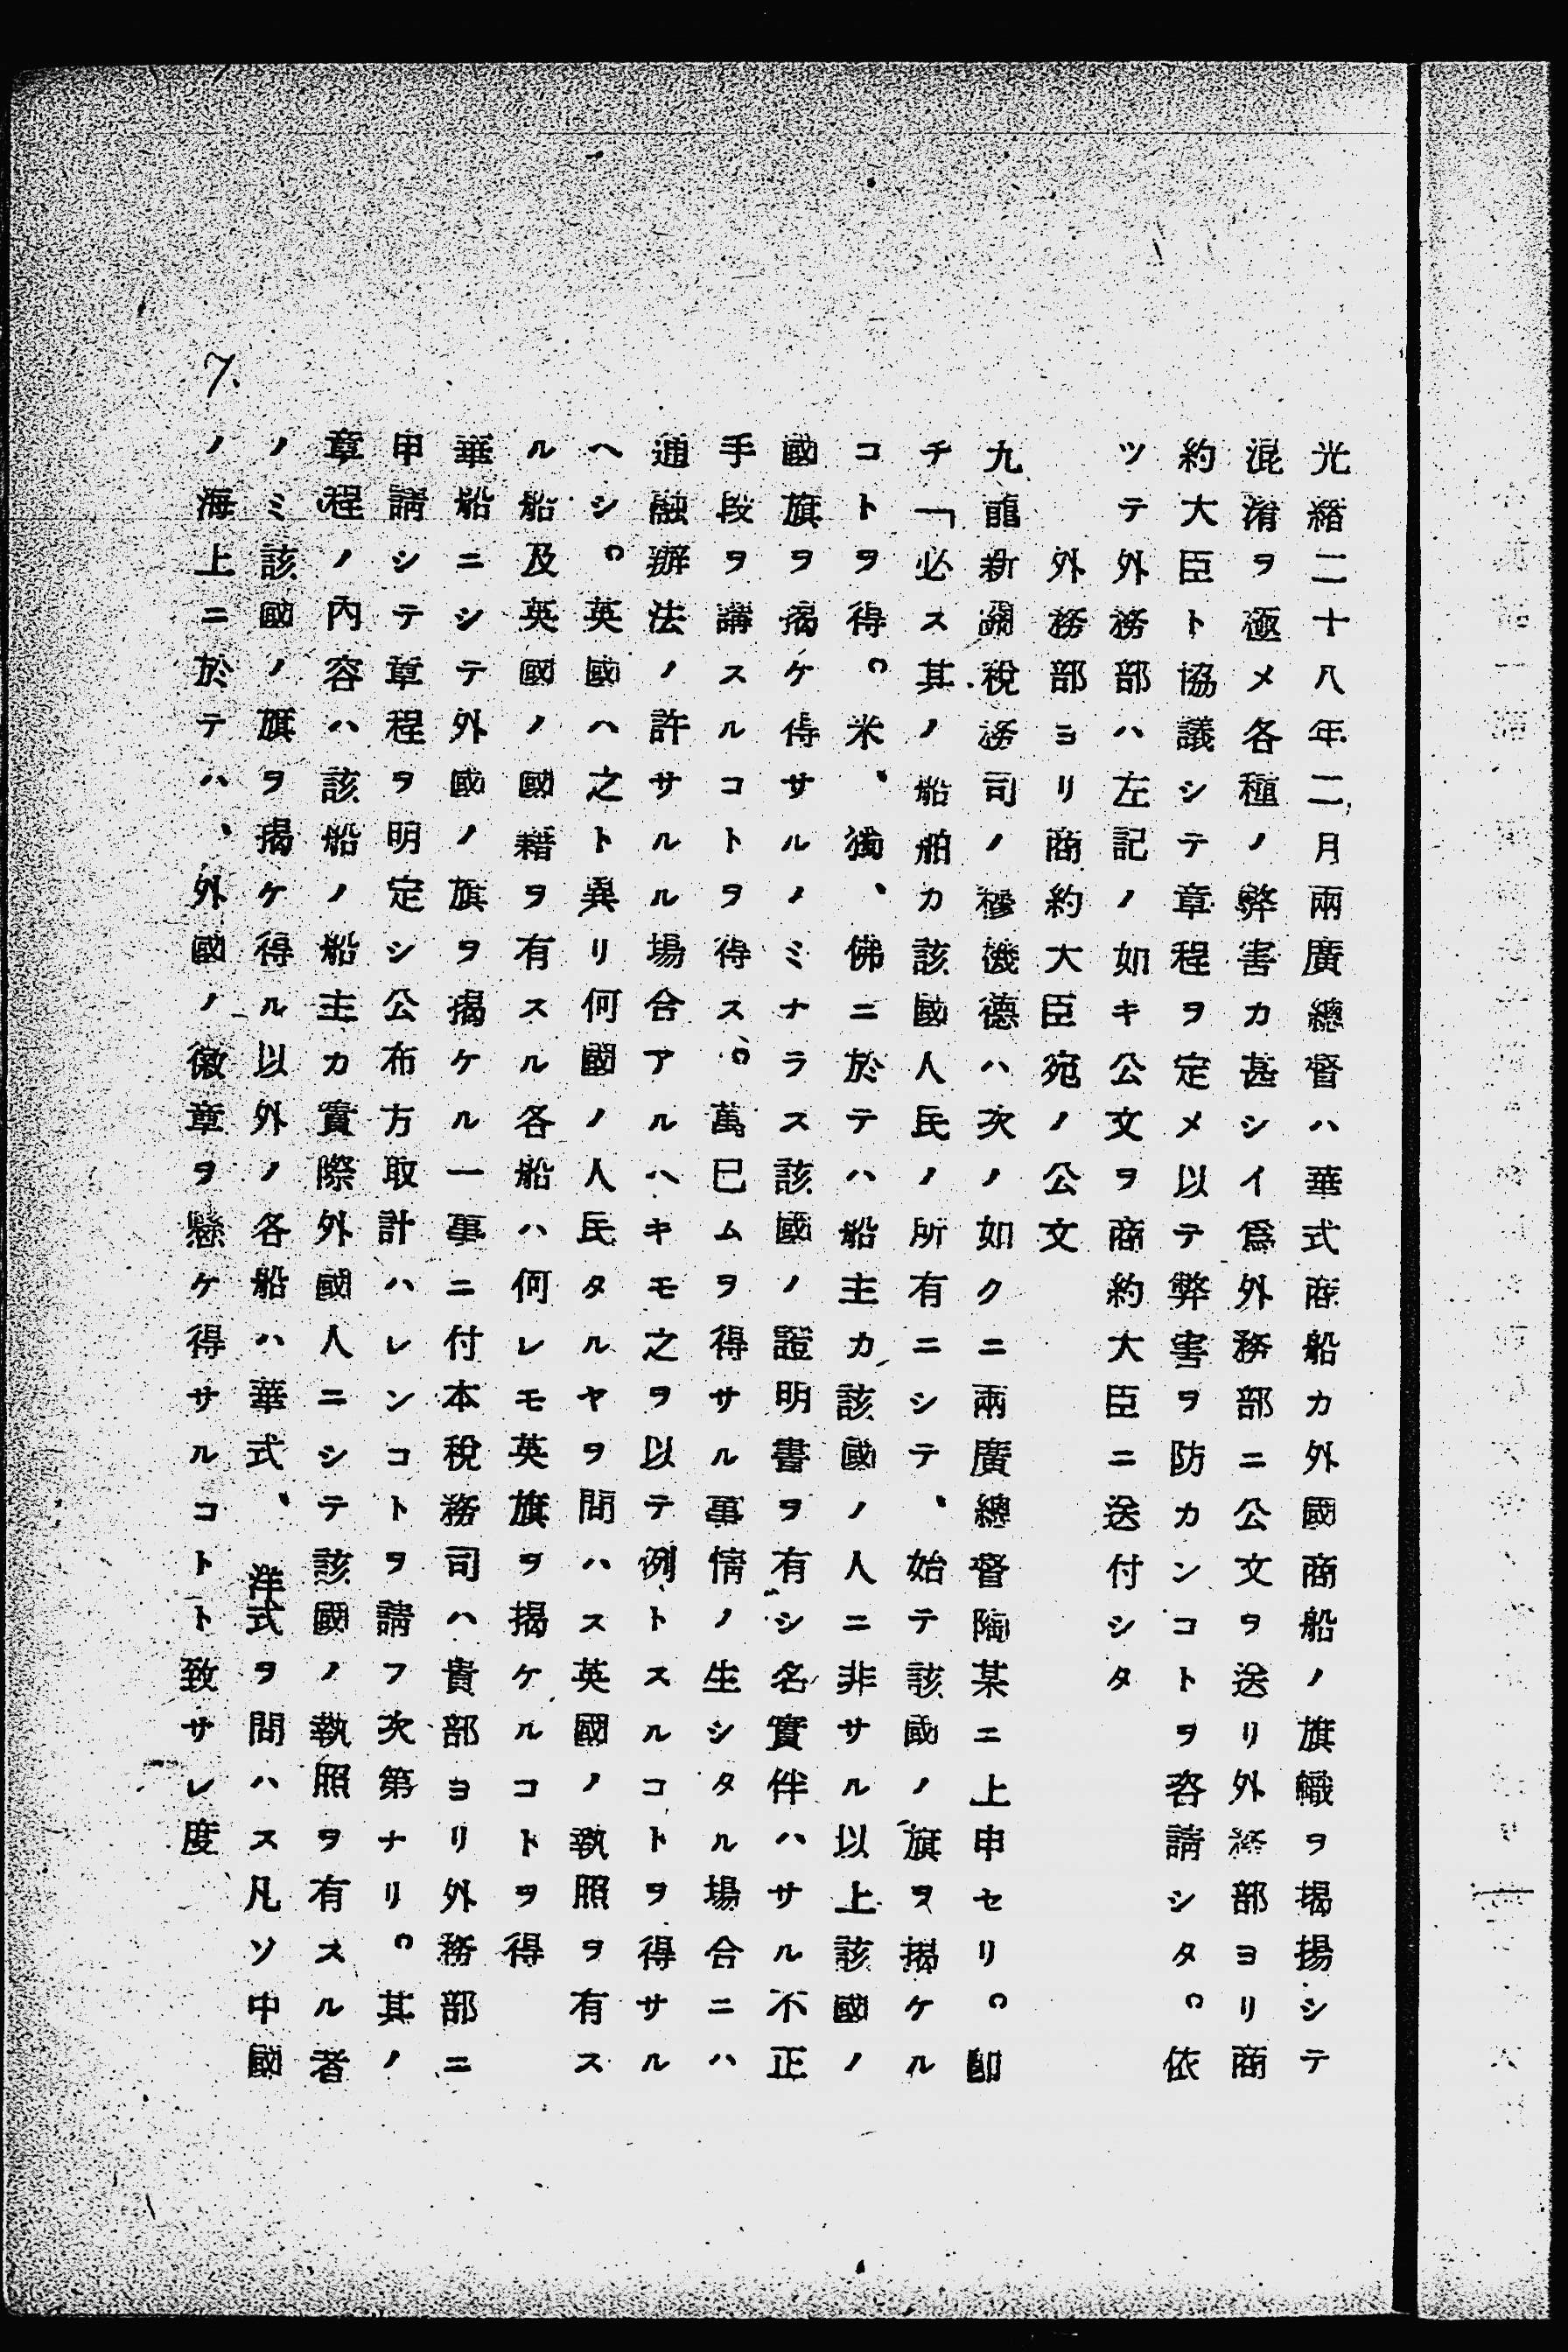 光緒二十八年二月兩廣總督ハ華式商船カ外國商船ノ旗幟ヲ揭揚シテ
混淆ヲ極メ各種ノ弊害カ甚シイ爲外務部ニ公文ヲ送リ外務部ヨリ商
約大臣ト協議シテ章程ヲ定メ以テ弊害ヲ防カンコトヲ咨請シタ。依
ツテ外務部ハ左記ノ如キ公文ヲ商約大臣ニ送付シタ
外務部ヨリ商約大臣宛ノ公文
九龍新關稅務司ノ穆機德ハ次ノ如クニ兩廣總督陶某ニ上申セリ。卽
チ「必ス其ノ船舶カ該國人民ノ所有ニシテ、始テ該國ノ旗ヲ揭ケル
コトヲ得。米、獨、佛ニ於テハ船主カ該國ノ人ニ非サル以上該國ノ
國旗ヲ揭ケ得サルノミナラス該國ノ證明書ヲ有シ名實伴ハサル不正
手段ヲ講スルコトヲ得ス。萬已ムヲ得サル事情ノ生シタル場合ニハ
通融辦法ノ許サルル場合アルヘキモ之ヲ以テ例トスルコトヲ得サル
ヘシ。英國ハ之ト異リ何國ノ人民タルヤヲ問ハス英國ノ執照ヲ有ス
ル船及英國ノ國籍ヲ有スル各船ハ何レモ英旗ヲ揭ケルコトヲ得
華船ニシテ外國ノ旗ヲ揭ケル一事ニ付本稅務司ハ貴部ヨリ外務部ニ
申請シテ章程ヲ明定シ公布方取計ハレンコトヲ請フ次第ナリ。其ノ
章程ノ內容ハ該船ノ船主カ實際外國人ニシテ該國ノ執照ヲ有スル者
ノミ該國ノ旗ヲ揭ケ得ル以外ノ各船ハ華式、洋式ヲ問ハス凡ソ中國
ノ海上ニ於テハ、外國ノ徽章ヲ懸ケ得サルコトト致サレ度
7.